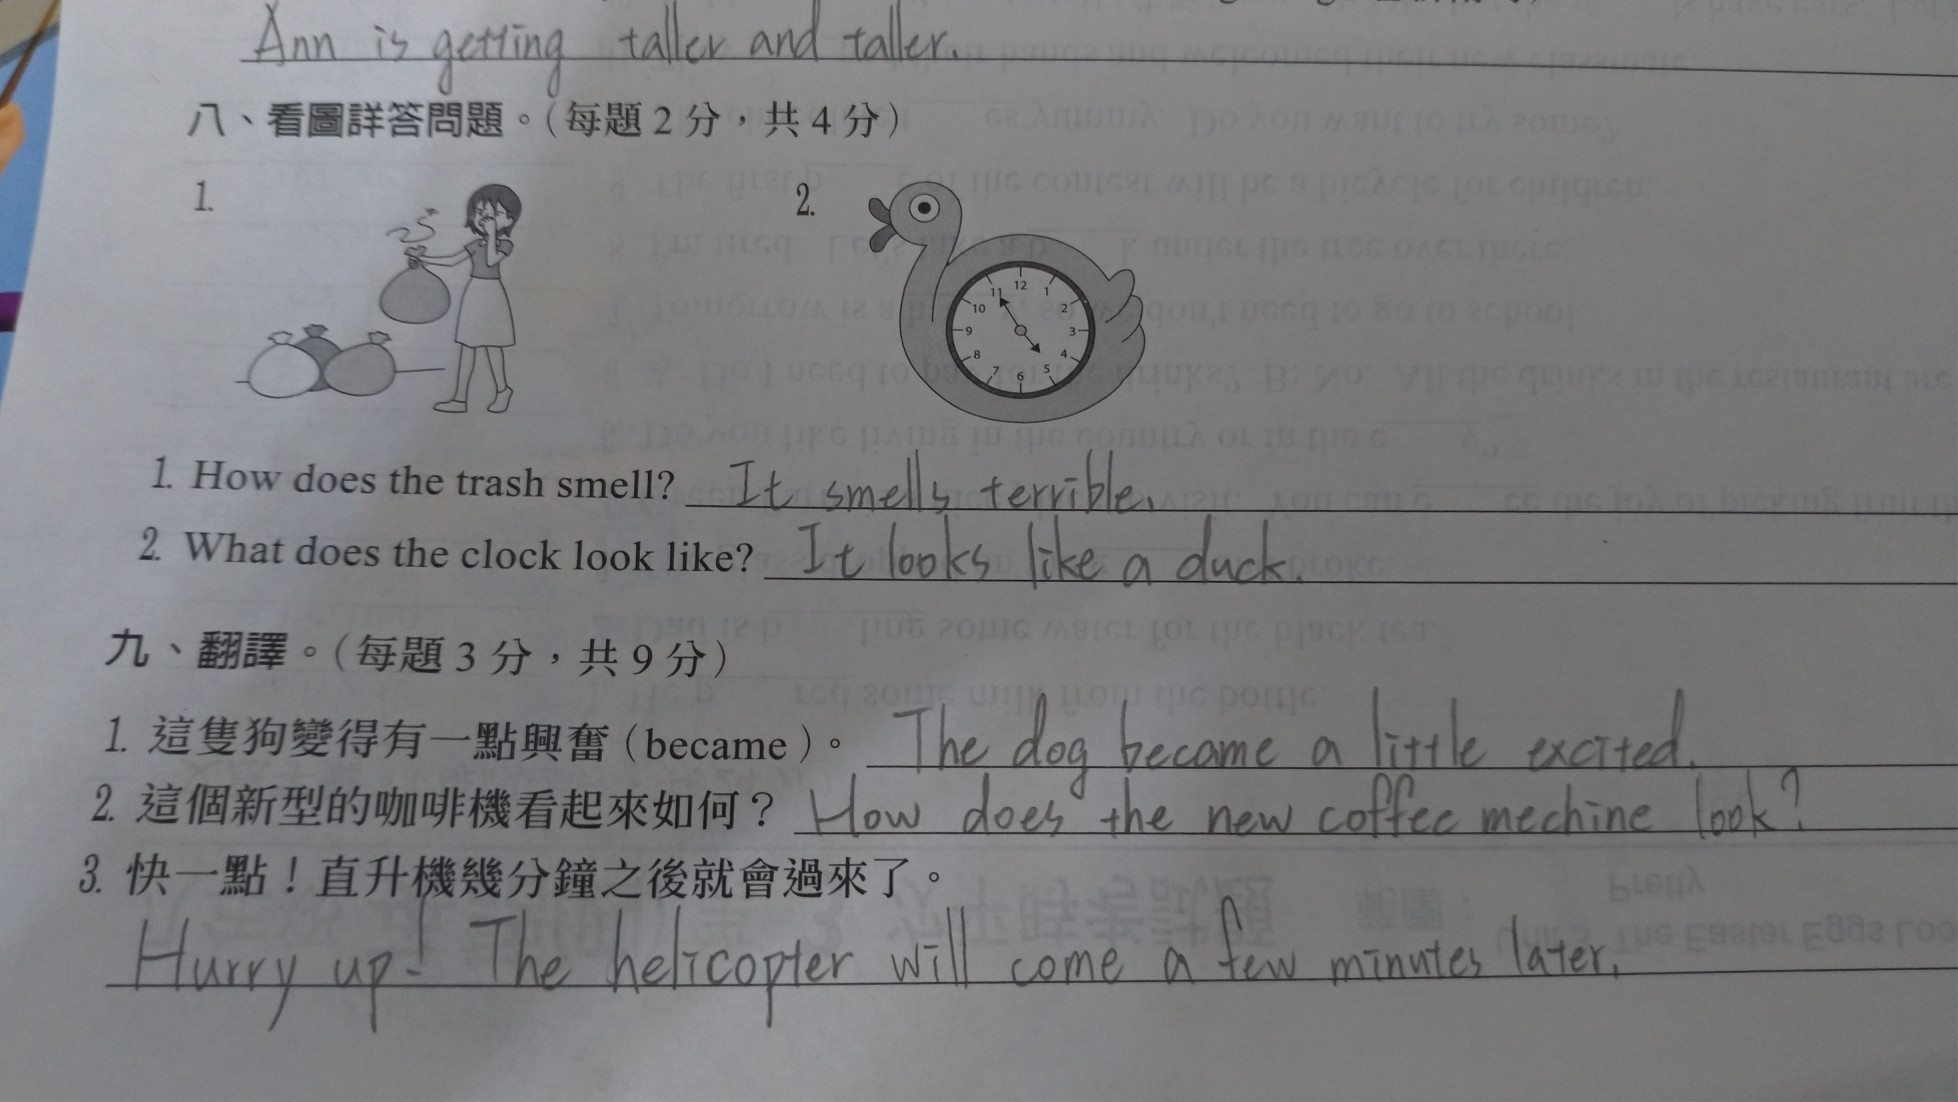 Ann is getting taller and taller.
八、看圖詳答問題。(每題 2 分，共 4 分)
1.
2.
12
11 1
10 2
9 3
8 4
7 6 5
1. How does the trash smell? It smells terrible.
2. What does the clock look like? It looks like a duck.
九、翻譯。(每題 3 分，共 9 分)
1. 這隻狗變得有一點興奮 (became)。 The dog became a little excited.
2. 這個新型的咖啡機看起來如何？ How does the new coffee mechine look?
3. 快一點！直升機幾分鐘之後就會過來了。
Hurry up! The helicopter will come a few minutes later.